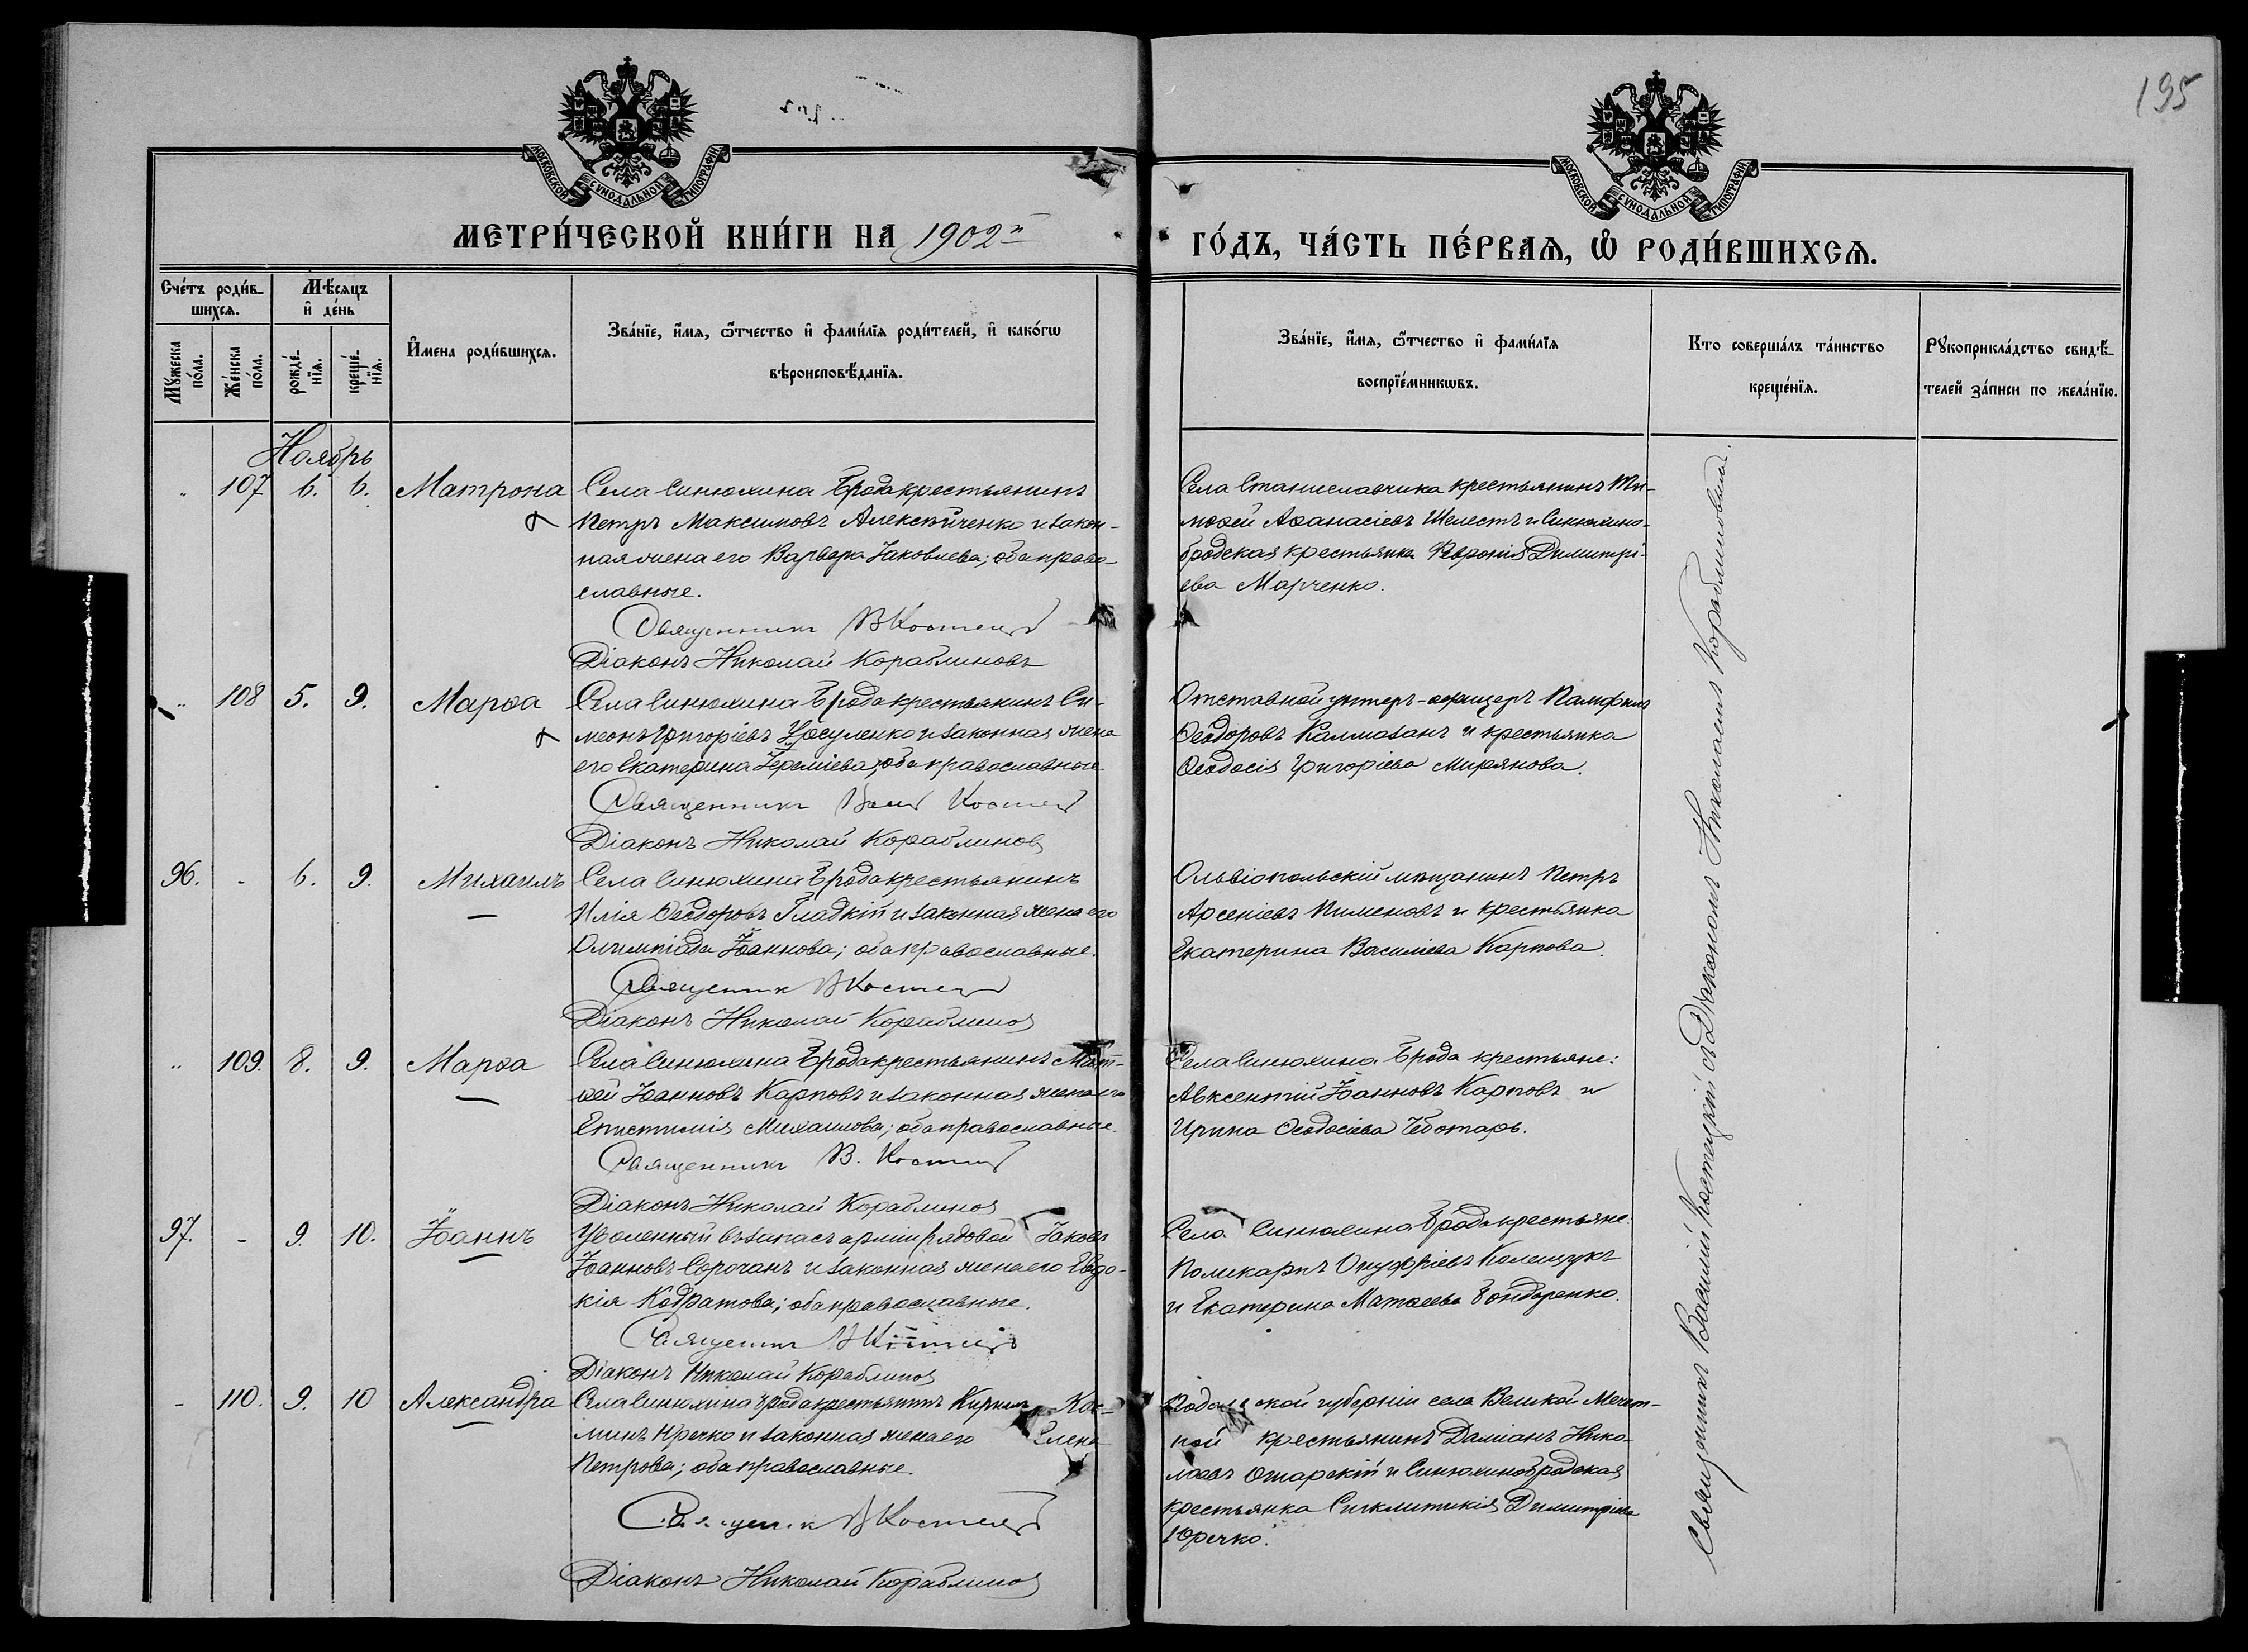 195
МОСКОВСКОЙ СѴНОДАЛЬНОЙ ТИПОГРАФІИ
МОСКОВСКОЙ СѴНОДАЛЬНОЙ ТИПОГРАФІИ
МЕТРИ́ЧЕСКОЙ КНИ́ГИ НА 1902й
ГО́ДЪ, ЧА́СТЬ ПЕ́РВАЯ, Ѡ҆ РОДИ́ВШИХСЯ.
Сче́тъ роди́в-
шихся.
Мѣ́сяцъ
и҆ де́нь
Мꙋ́жеска по́ла.
Же́нска по́ла.
рожде́-
нїя.
креще́-
нїя.
И҆мена роди́вшихся.
Зва́нїе, и҆́мя, ѻ҆́тчество и҆ фами́лїя роди́телей, и҆ како́гѡ
вѣроисповѣ́данїя.
Зва́нїе, и҆́мя, ѻ҆́тчество и҆ фами́лїя
воспрїе́мникѡвъ.
Кто соверша́лъ та́инство
креще́нїя.
Рꙋкоприкла́дство свидѣ́-
телей за́писи по жела́нїю.
Ноябрь
" 107 6. 6. Матрона
Села Синюхина Брода крестьянинъ
Петръ Максимовъ Алексѣченко и закон-
ная жена его Варвара Іаковлева; оба право-
славные.
Священникъ В Костец
Діаконъ Николай Кораблиновъ
Села Станиславчика крестьянинъ Ти-
моѳей Аѳанасіевъ Шелестъ и Синюхино-
бродская крестьянка Февронія Димитрі-
ева Марченко.
" 108 5. 9. Марѳа
Села Синюхина Брода крестьянинъ Си-
меонъ Григоріевъ Носуленко и законная жена
его Екатерина Іереміева; оба православные
Священникъ Васил Костец
Діаконъ Николай Кораблинов
Отставной унтеръ-офицеръ Памфилъ
Ѳеодоровъ Калмазанъ и крестьянка
Ѳеодосія Григоріева Мирянова.
96. - 6. 9. Михаилъ
Села Синюхина Брода крестьянинъ
Илія Ѳеодоровъ Гладкій и законная жена его
Олимпіада Іоаннова; оба православные.
Священник В Костец
Діаконъ Николай Кораблинов
Ольвіопольскій мѣщанинъ Петръ
Арсеніевъ Пименовъ и крестьянка
Екатерина Василіева Карпова.
" 109. 8. 9. Марѳа
Села Синюхина Брода крестьянинъ Мат-
ѳей Іоанновъ Карповъ и законная жена его
Епистимія Михаилова; оба православные.
Священникъ В. Костец
Діаконъ Николай Кораблинов
Села Синюхина Брода крестьяне:
Авксентій Іоанновъ Карповъ и
Ирина Ѳеодосіева Чеботарь.
97. - 9. 10. Іоаннъ
Уволенный въ запасъ арміи рядовой Іаковъ
Іоанновъ Сорочанъ и законная жена его Евдо-
кія Кодратова; оба православные.
Священник В Костец
Діаконъ Николай Кораблинов
Села Синюхина Брода крестьяне:
Поликарпъ Онуфріевъ Колещукъ
и Екатерина Матѳеева Бондаренко.
- 110. 9. 10 Александра
Села Синюхина Брода крестьянинъ Кириллъ Кос-
минъ Юречко и законная жена его Елена
Петрова; оба православные.
Священник В Костец
Діаконъ Николай Кораблинов
Подольской губерніи села Великой Мечет-
ной крестьянинъ Даміанъ Нико-
лаевъ и Синюхинобродская
крестьянка Синклитикія Димитріева
Юречко.
Священникъ Василій Костецкій съ Діакономъ Николаемъ Кораблиновымъ.